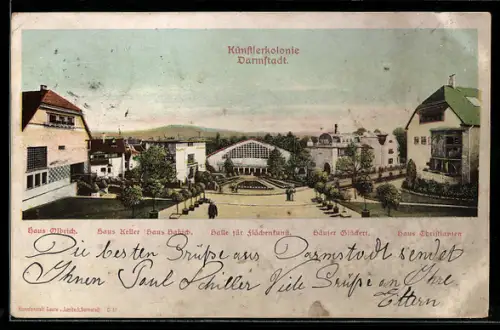 Künstlerkolonie
Darmstadt.
Haus Olbrich. Haus Keller Haus Habich. Halle für Flächenkunst. Häuser Glückert. Haus Christiansen
Die besten Grüße aus Darmstadt sendet
Ihnen Paul Schiller Viele Grüße an Ihre
Eltern